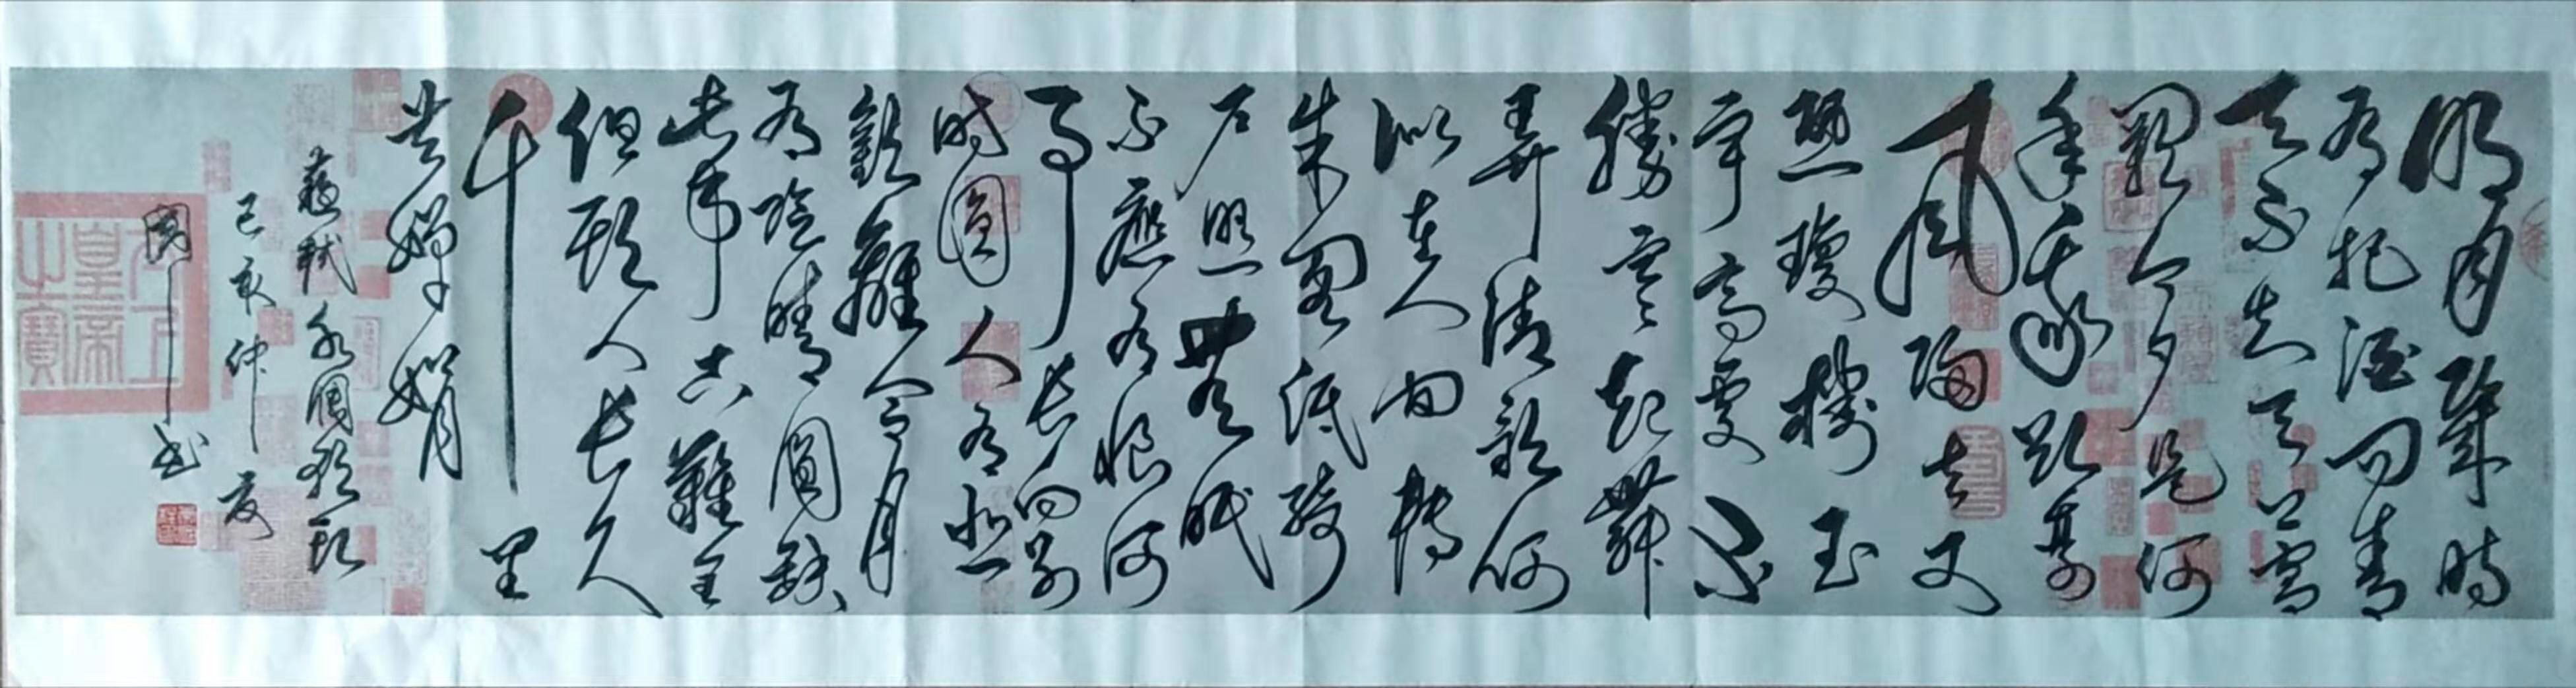 明月幾時
有把酒問青
天不知天上宮
闕今夕是何
年我欲乘
風歸去又
恐瓊樓玉
宇高處不
勝寒起舞
弄清影何
似在人間轉
朱閣低綺
户照無眠
不應有恨何
事長向别
時圓人有悲
歡離合月
有陰晴圓缺
此事古難全
但願人長久
千里
共嬋娟
蘇軾水調歌頭
己亥仲夏
國書
太上皇帝之寶